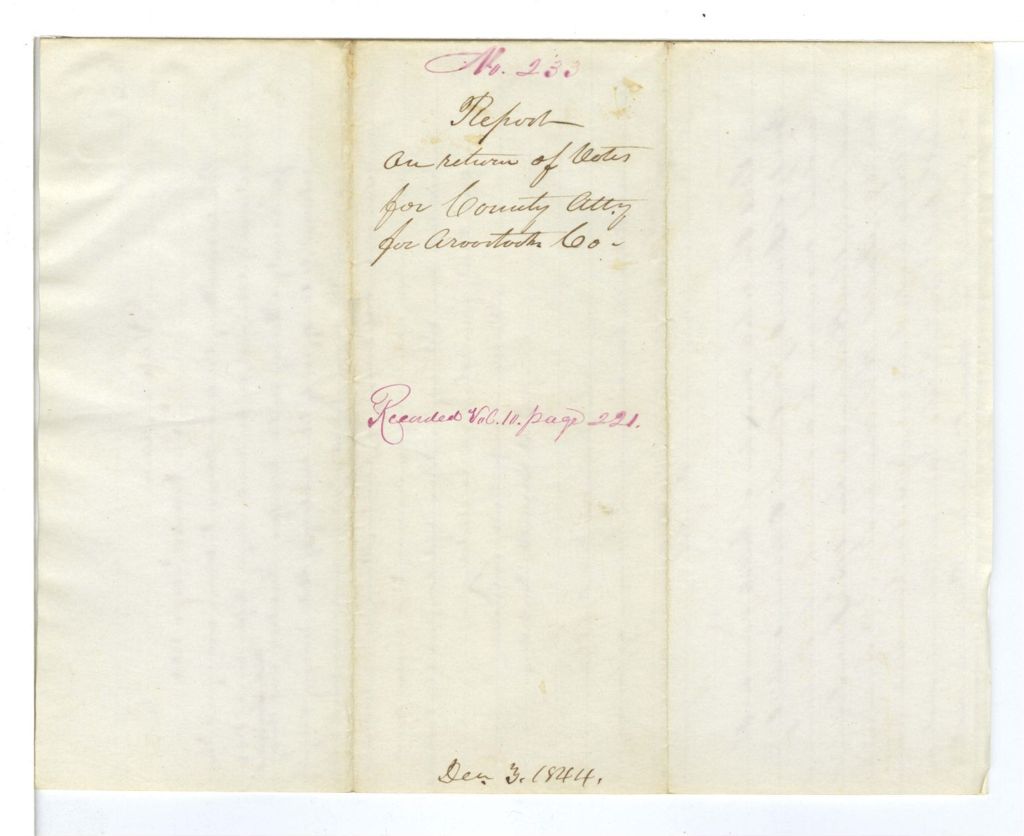 No. 233
Report
on return of Votes
for County Atty
for Aroostook Co-
Recorded Vol. 10. page 221.
Dec. 3. 1844.